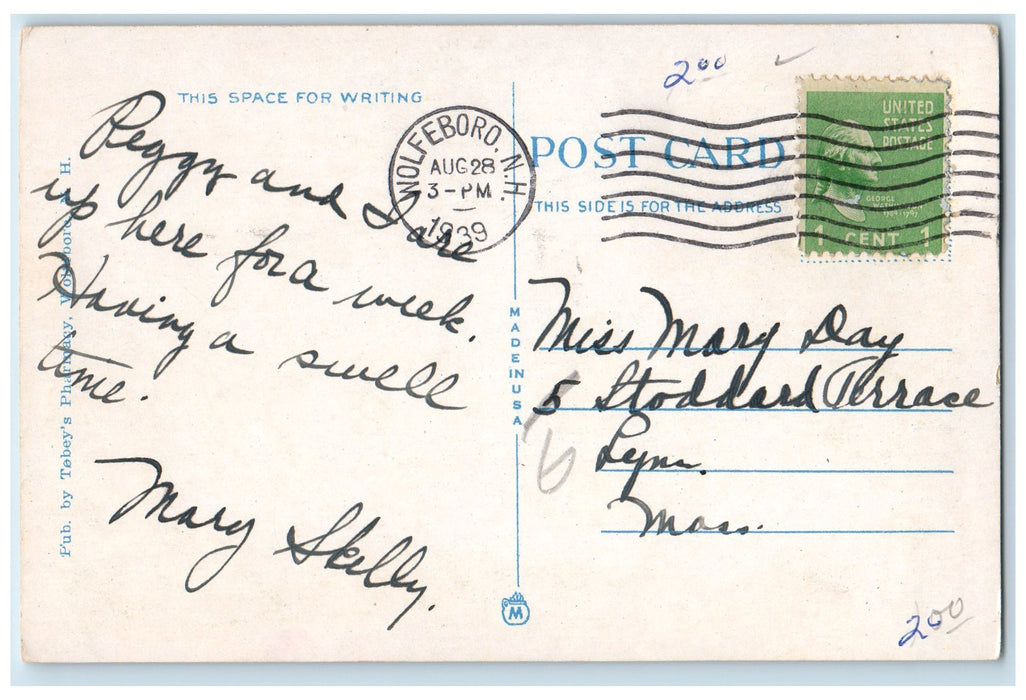 THIS SPACE FOR WRITING
Peggy and I are
up here for a week.
Having a swell
time.
Mary Skelly.
Pub. by Tobey's Pharmacy, Wolfeboro, N. H.
WOLFEBORO, N.H.
AUG 28
3-PM
1939
MADE IN USA
M
2.00
POST CARD
THIS SIDE IS FOR THE ADDRESS
UNITED
STATES
POSTAGE
GEORGE
1 CENT 1
Miss Mary Day
5 Stoddard Terrace
Lynn.
Mass.
2.00